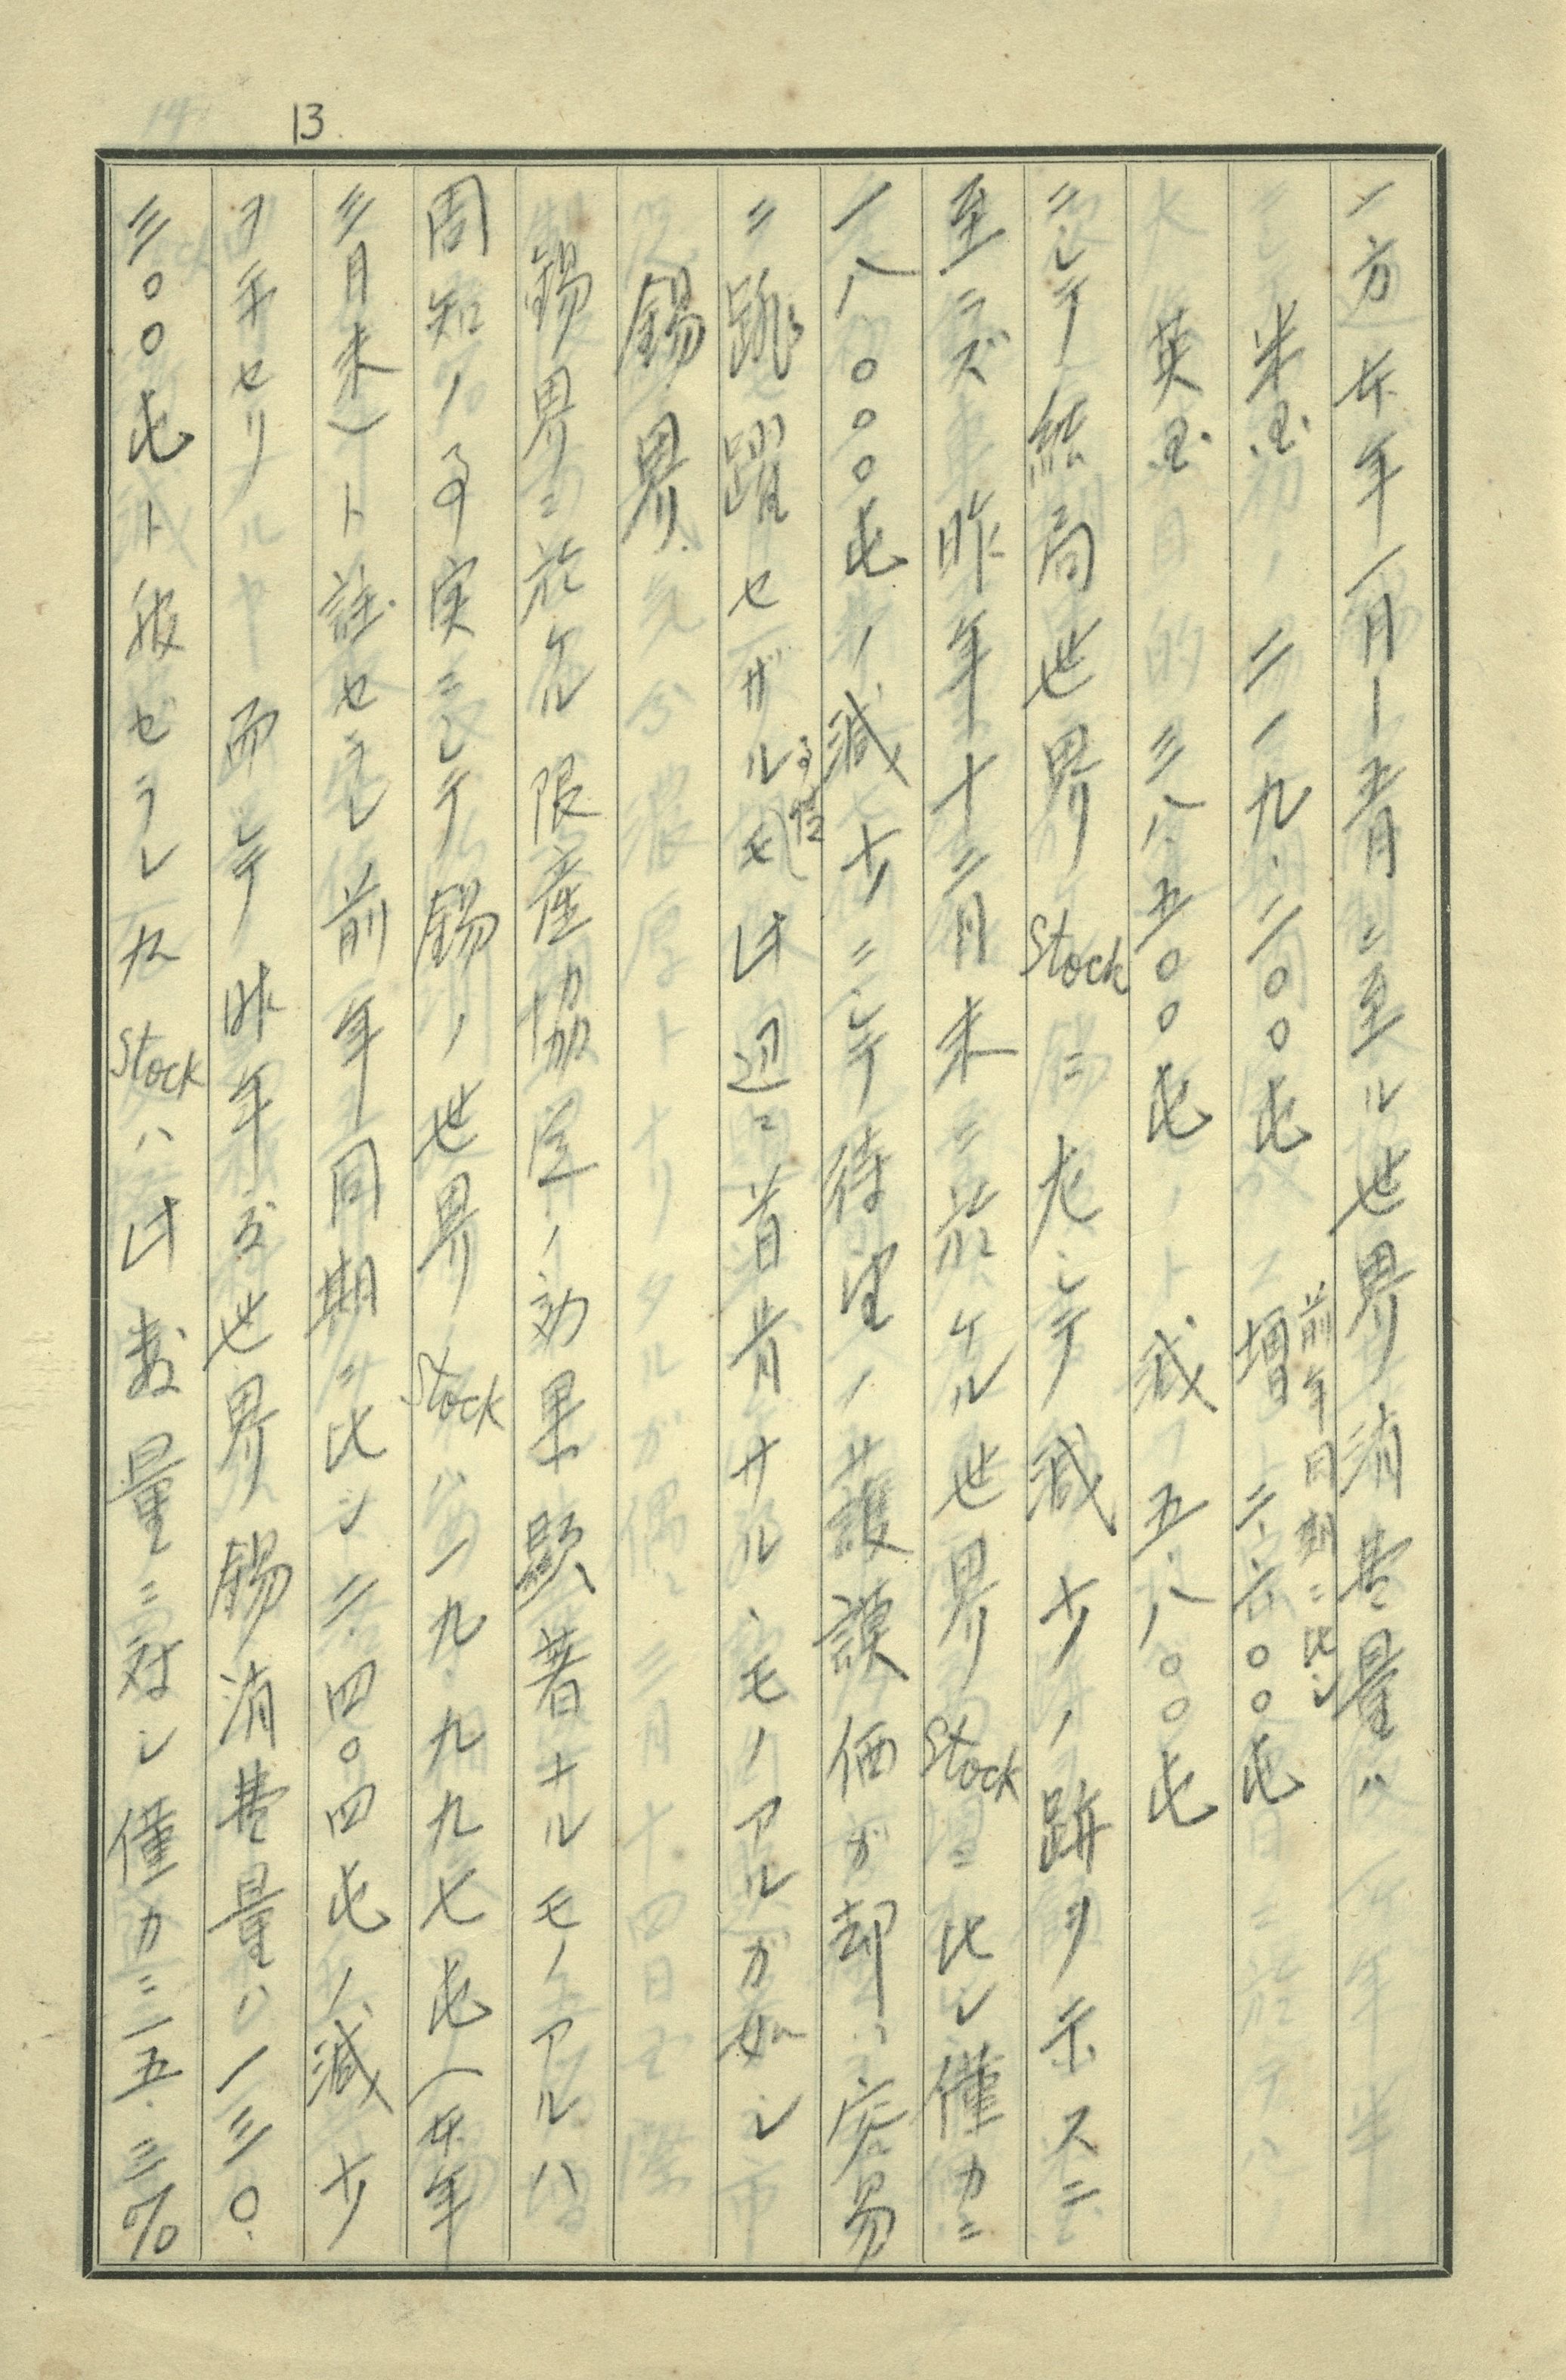 13
一方本年一月ー五月ニ至ル世界消費量ハ
米国 二一九.二〇〇屯 前年同期ニ比シ 増 二.六〇〇屯
英国 三八.五〇〇屯 減 五八〇〇屯
ニシテ結局世界Stockニ大シテ減少ノ跡ヲ示スニ
至ラズ昨年十二月末ニ於ケル世界Stockニ比シ僅カニ
一八〇〇〇屯ノ減少ニシテ待望ノ護謨価ガ却々容易
ニ跳躍セザル事情モ此辺ニ首肯サルヽモノアルガ如シ
錫界
錫界ニ於ケル限産協定ノ効果顕著ナルモノアルハ
周知ノ事実ニシテ錫ノ世界Stockハ 一九.九九七屯(本年
三月末)ト註セラレ前年同期ニ比シ二.四〇四屯ノ減少
ヲ来セリ 而シテ昨年ノ世界錫消費量ハ一三〇.
三〇〇屯ト報ゼラレ右Stockハ此数量ニ対シ僅カニ一五.三%